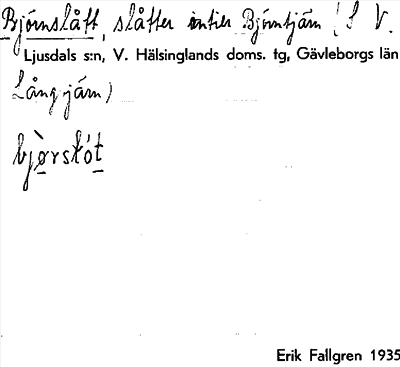 Björnslått, slåtter intill Björntjärn (S V.
Ljusdals s:n, V. Hälsinglands doms. tg, Gävleborgs län
Långtjärn)
bjòrsłót
Erik Fallgren 1935